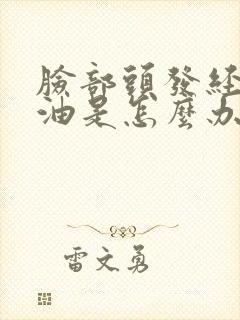 臉部頭發經
油是怎麼办
雷文勇